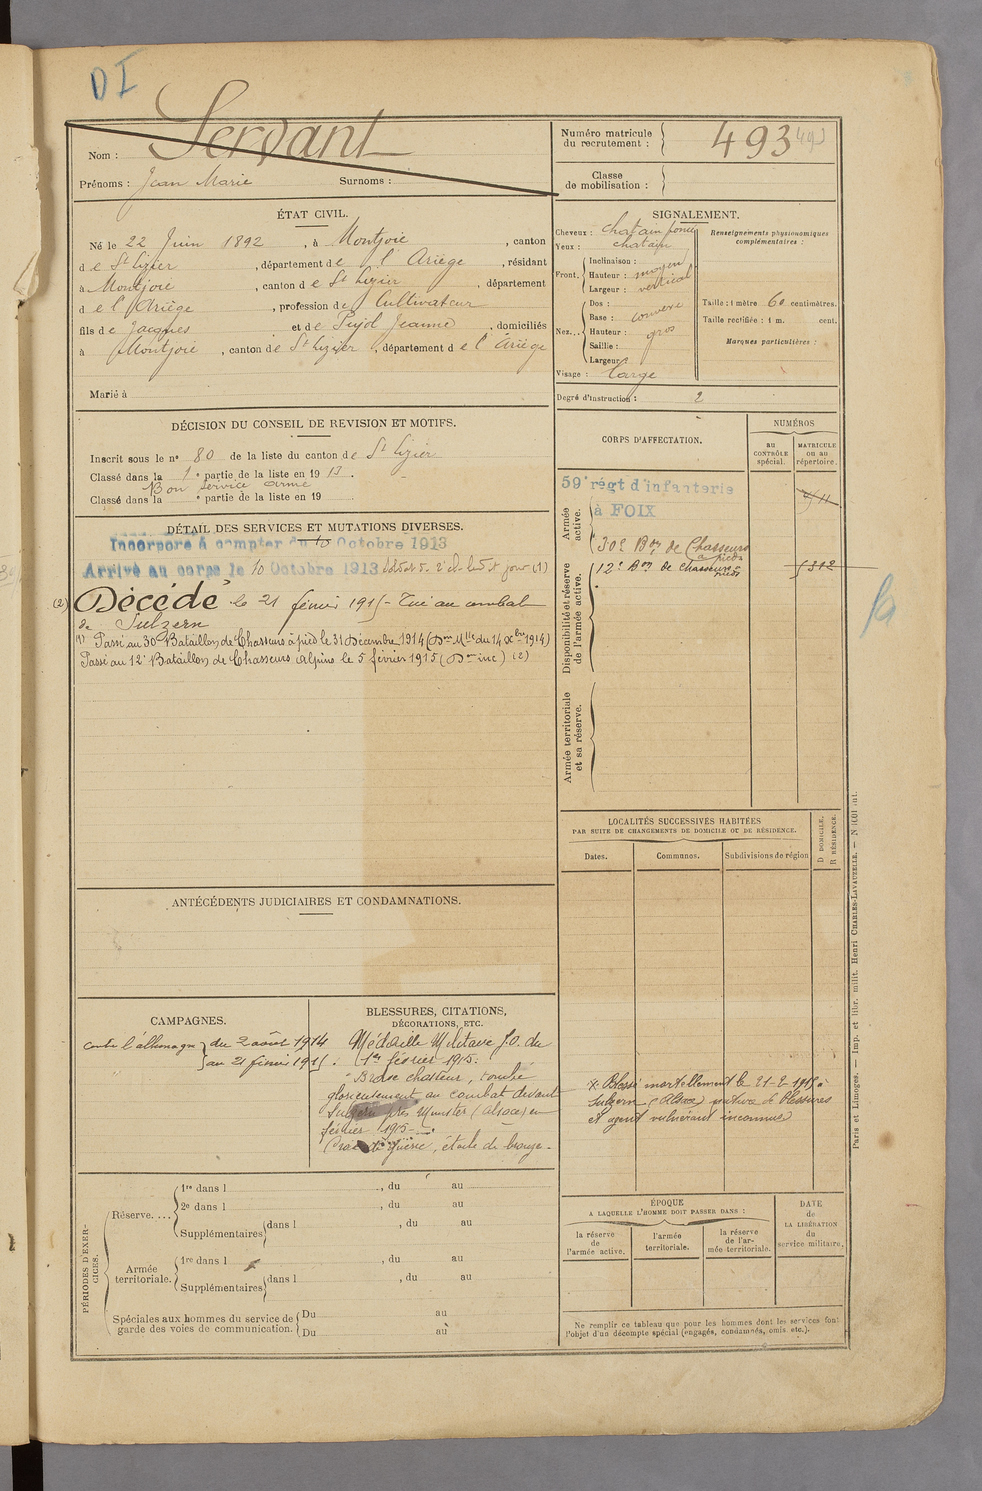 DI
Nom : Servant
Prénoms : Jean Marie Surnoms :
Numéro matricule du recrutement : 493 493
Classe de mobilisation :
ÉTAT CIVIL.
Né le 22 Juin 1892, à Montjoie, canton
de St Lizier, département de l'Ariège, résidant
à Montjoie, canton de St Lizier, département
de l'Ariège, profession de Cultivateur
fils de Jacques et de Pujol Jeanne, domiciliés
à Montjoie, canton de St Lizier, département de l'Ariège
Marié à
SIGNALEMENT.
Cheveux : chatain foncé
Yeux : chatain
Front. Inclinaison :
Hauteur : moyen
Largeur : vertical
Nez. Dos :
Base : convexe
Hauteur : gros
Saillie :
Largeur :
Visage : large
Renseignements physionomiques complémentaires :
Taille : 1 mètre 60 centimètres.
Taille rectifiée : 1 m. cent.
Marques particulières :
Degré d'instruction : 2
DÉCISION DU CONSEIL DE REVISION ET MOTIFS.
Inscrit sous le nº 80 de la liste du canton de St Lizier
Classé dans la 1e partie de la liste en 1913.
Bon service armé
Classé dans la e partie de la liste en 19
CORPS D'AFFECTATION.
NUMÉROS
AU CONTRÔLE spécial.
MATRICULE ou au répertoire.
Armée active.
59e régt d'infanterie
à FOIX
30e Bon de Chasseurs à pieds
Disponibilité et réserve de l'armée active.
12e Bon de Chasseurs à pieds 5312
Armée territoriale et sa réserve.
DÉTAIL DES SERVICES ET MUTATIONS DIVERSES.
Incorporé à compter du 10 Octobre 1913
Arrivé au corps le 10 Octobre 1913 soldat de 2e cl. led jour (1)
(2) Décédé le 21 février 1915 - Tué au combat
de Sulzern
(1) Passé au 30e Bataillon de Chasseurs à pied le 31 Décembre 1914 (Don Mlle du 14 Xbre 1914)
Passé au 12e Bataillon de Chasseurs Alpins le 5 février 1915 (Don inc) (2)
LOCALITÉS SUCCESSIVES HABITÉES
PAR SUITE DE CHANGEMENTS DE DOMICILE OU DE RÉSIDENCE.
Dates. Communes. Subdivisions de région
D DOMICILE.
R RÉSIDENCE.
* Blessé mortellement le 21-2-1915 à
Sulzern (Alsace) nature de blessures
et agent vulnérant inconnus
ANTÉCÉDENTS JUDICIAIRES ET CONDAMNATIONS.
CAMPAGNES.
contre l'allemagne du 2 août 1914
au 21 février 1915.
BLESSURES, CITATIONS,
DÉCORATIONS, ETC.
Médaille Militaire J.O. du
1er février 1915.
Brave chasseur, tombé
glorieusement au combat devant
Sulzern près Munster (Alsace) en
février 1915.
Croix de guerre, étoile de bronze.
PÉRIODES D'EXERCICES.
Réserve....
1re dans l , du au
2e dans l , du au
Supplémentaires dans l , du au
Armée territoriale.
1re dans l , du au
Supplémentaires dans l , du au
Spéciales aux hommes du service de garde des voies de communication.
Du au
Du au
ÉPOQUE
A LAQUELLE L'HOMME DOIT PASSER DANS :
la réserve de l'armée active.
l'armée territoriale.
la réserve de l'armée territoriale.
DATE de LA LIBÉRATION du service militaire.
Ne remplir ce tableau que pour les hommes dont les services font
l'objet d'un décompte spécial (engagés, condamnés, omis etc.).
Paris et Limoges. — Imp. et libr. milit. Henri CHARLES-LAVAUZELLE.